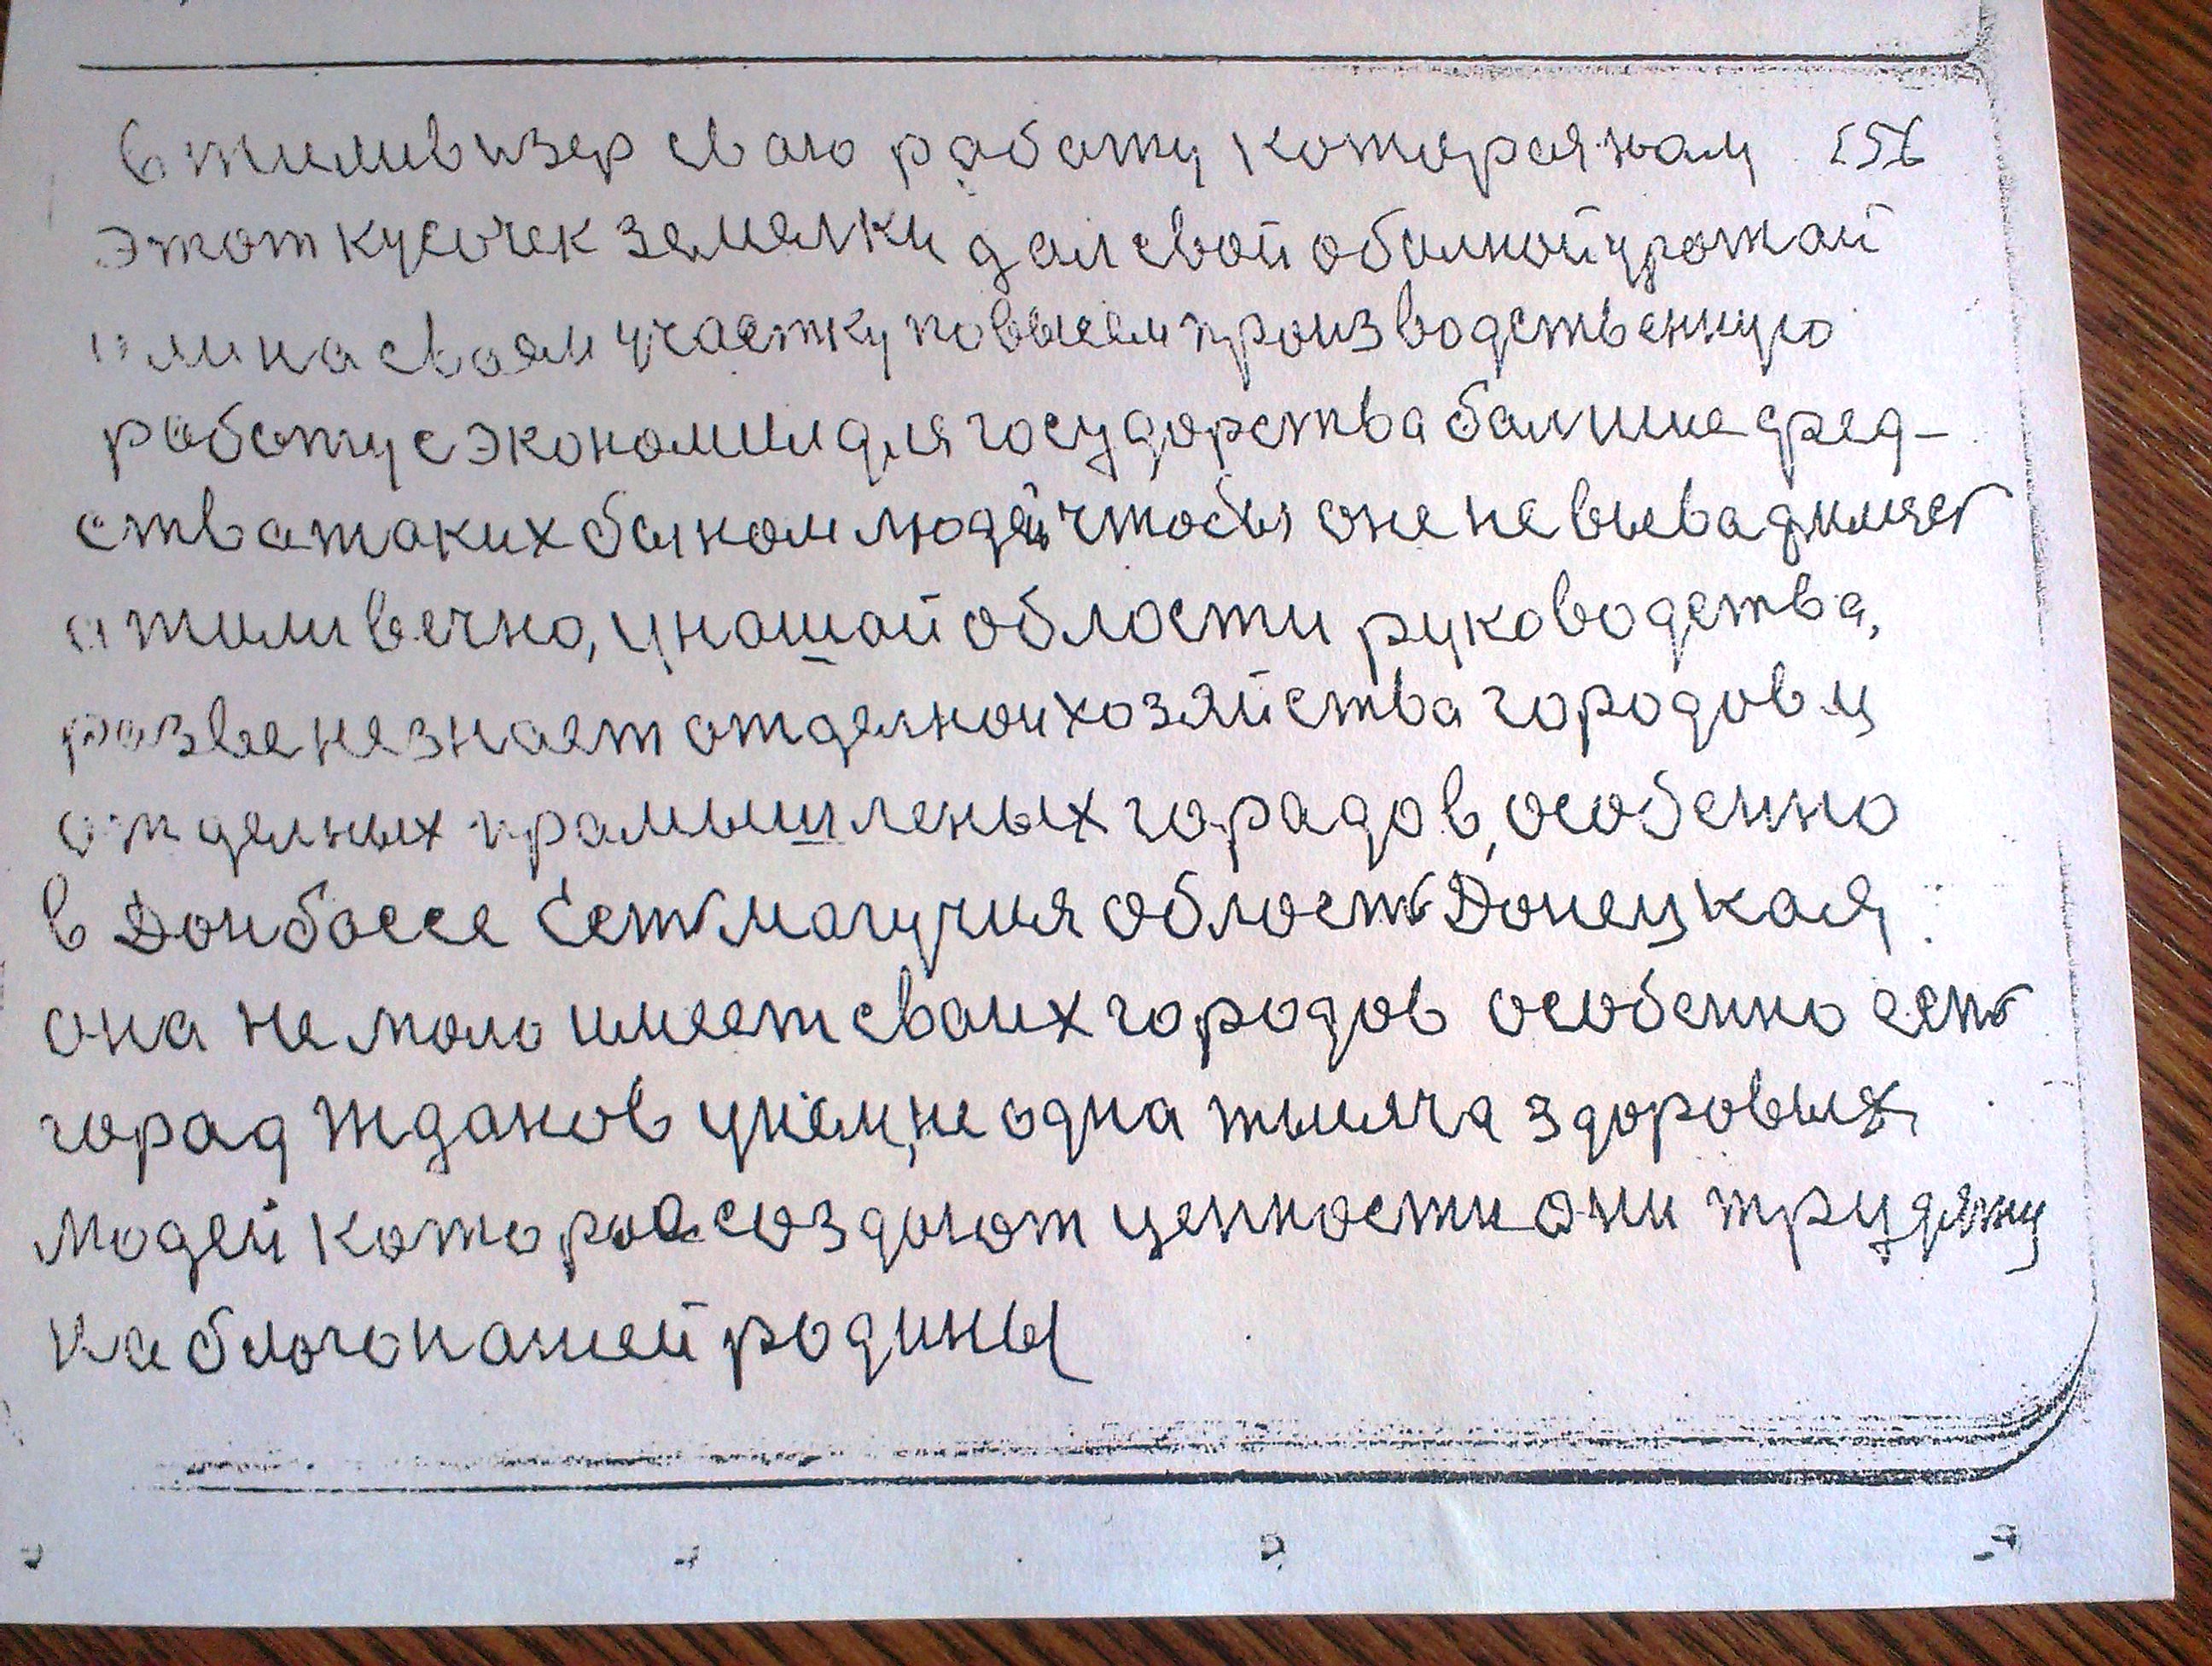 в тиливизер сваю работу котарая нам 256
этот кусочек земелки дал свой обилной урожай
или на своем участку повысем производственную
работу сэкономил для государства балшие сред-
ства таких банком людей чтобы оне не вывадилися
а жили вечно, у нашой области руководства,
разве не знает отделнои хозяйства городов и
отделных прамышленых горадов, особенно
в Донбоссе Есть магучия область Донецкая
она не мало имеет сваих городов особенно есть
горад Жданов у нём, не одна тысяча здоровых
людей которые создают ценности они трудяту
На благо нашей родины